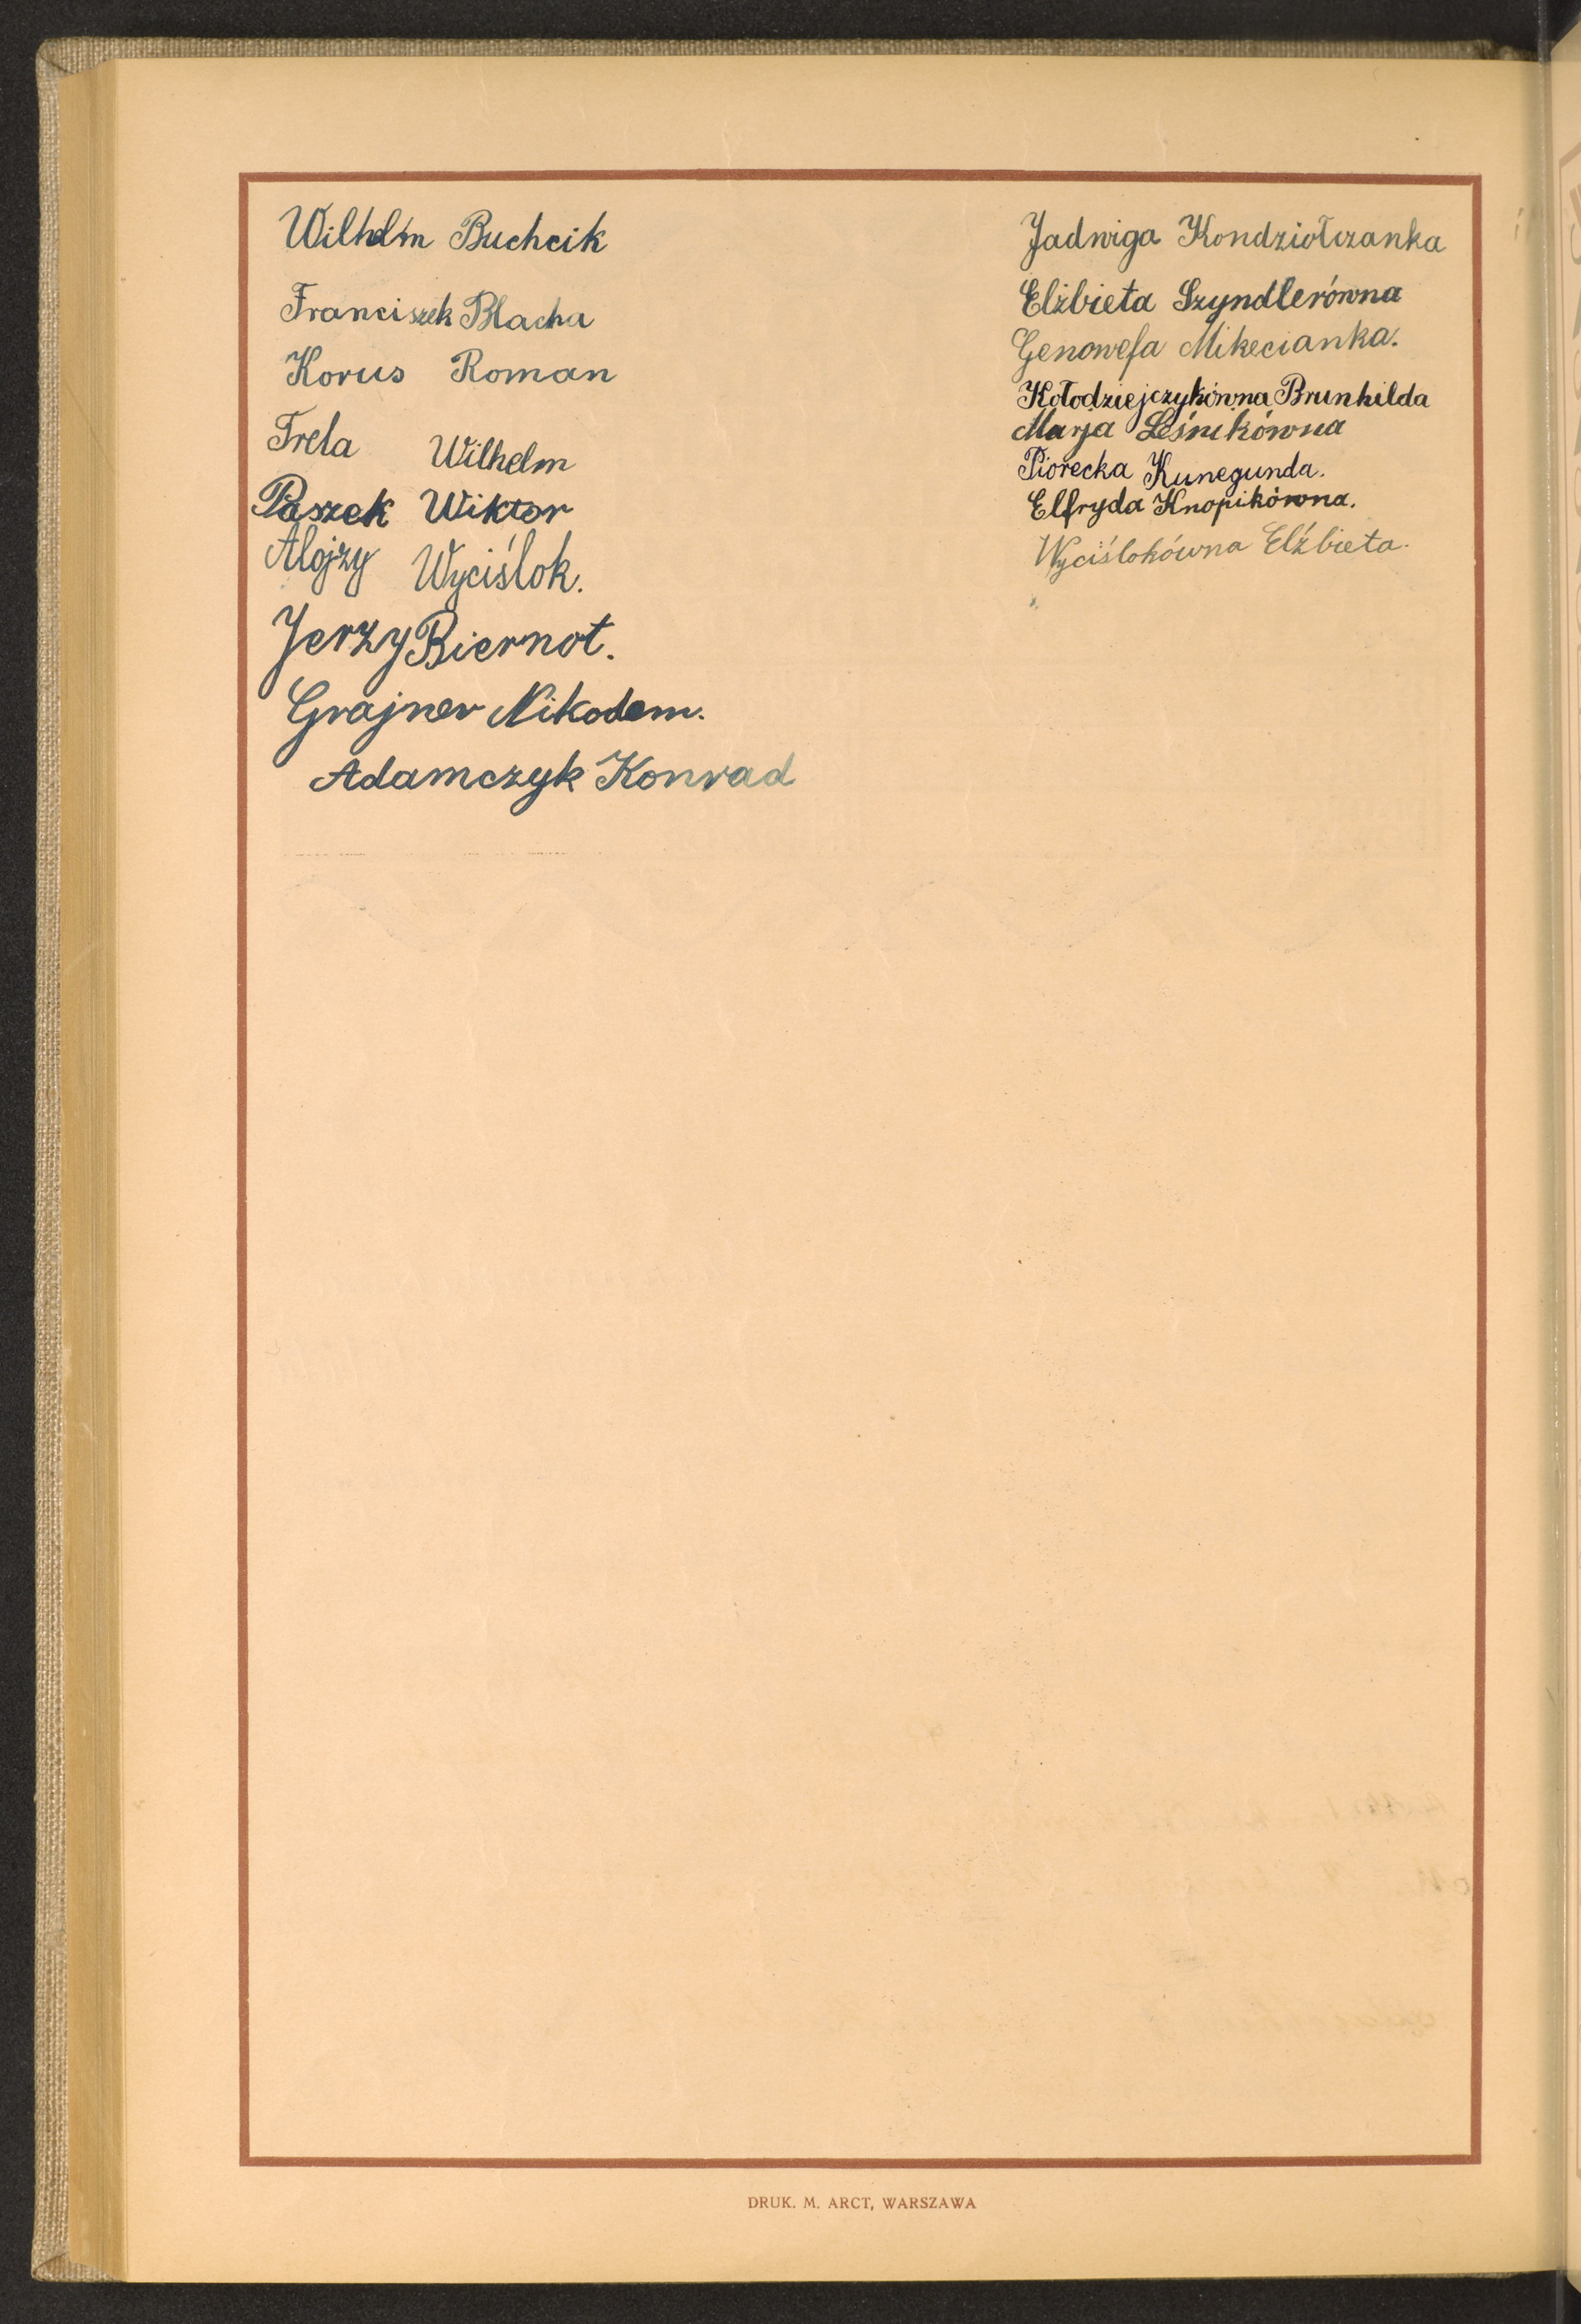 Wilhelm Buchcik
Franciszek Blacha
Korus Roman
Trela Wilhelm
Paszek Wiktor
Alojzy Wyciślok.
Jerzy Biernot.
Grajner Nikodem.
Adamczyk Konrad
Jadwiga Kondziołczanka
Elżbieta Szyndlerówna
Genowefa Mikecianka.
Kołodziejczykówna Brunhilda
Marja Leśnikówna
Piorecka Kunegunda.
Elfryda Knopikówna.
Wyciślokówna Elżbieta.
DRUK. M. ARCT, WARSZAWA